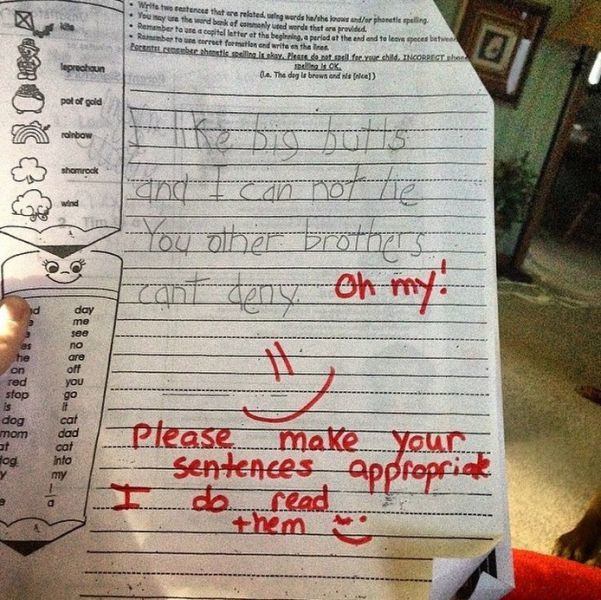 • Write two sentences that are related, using words he/she knows and/or phonetic spelling.
• You may use the word bank of commonly used words that are provided.
• Remember to use a capital letter at the beginning, a period at the end and to leave spaces between
• Remember to use correct formation and write on the lines.
Parents remember phonetic spelling is okay. Please do not spell for your child. INCORRECT
spelling is OK.
(i.e. The dog is brown and nis [nice])
kite
leprechaun
pot of gold
rainbow
shamrock
wind
I like big butts
and I can not lie
You other brothers
cant deny. Oh my!
Please make your
sentences appropriate
I do read
them
day
me
see
es no
he are
on off
red you
stop go
is it
dog cat
mom dad
at cat
into
y my
I
a